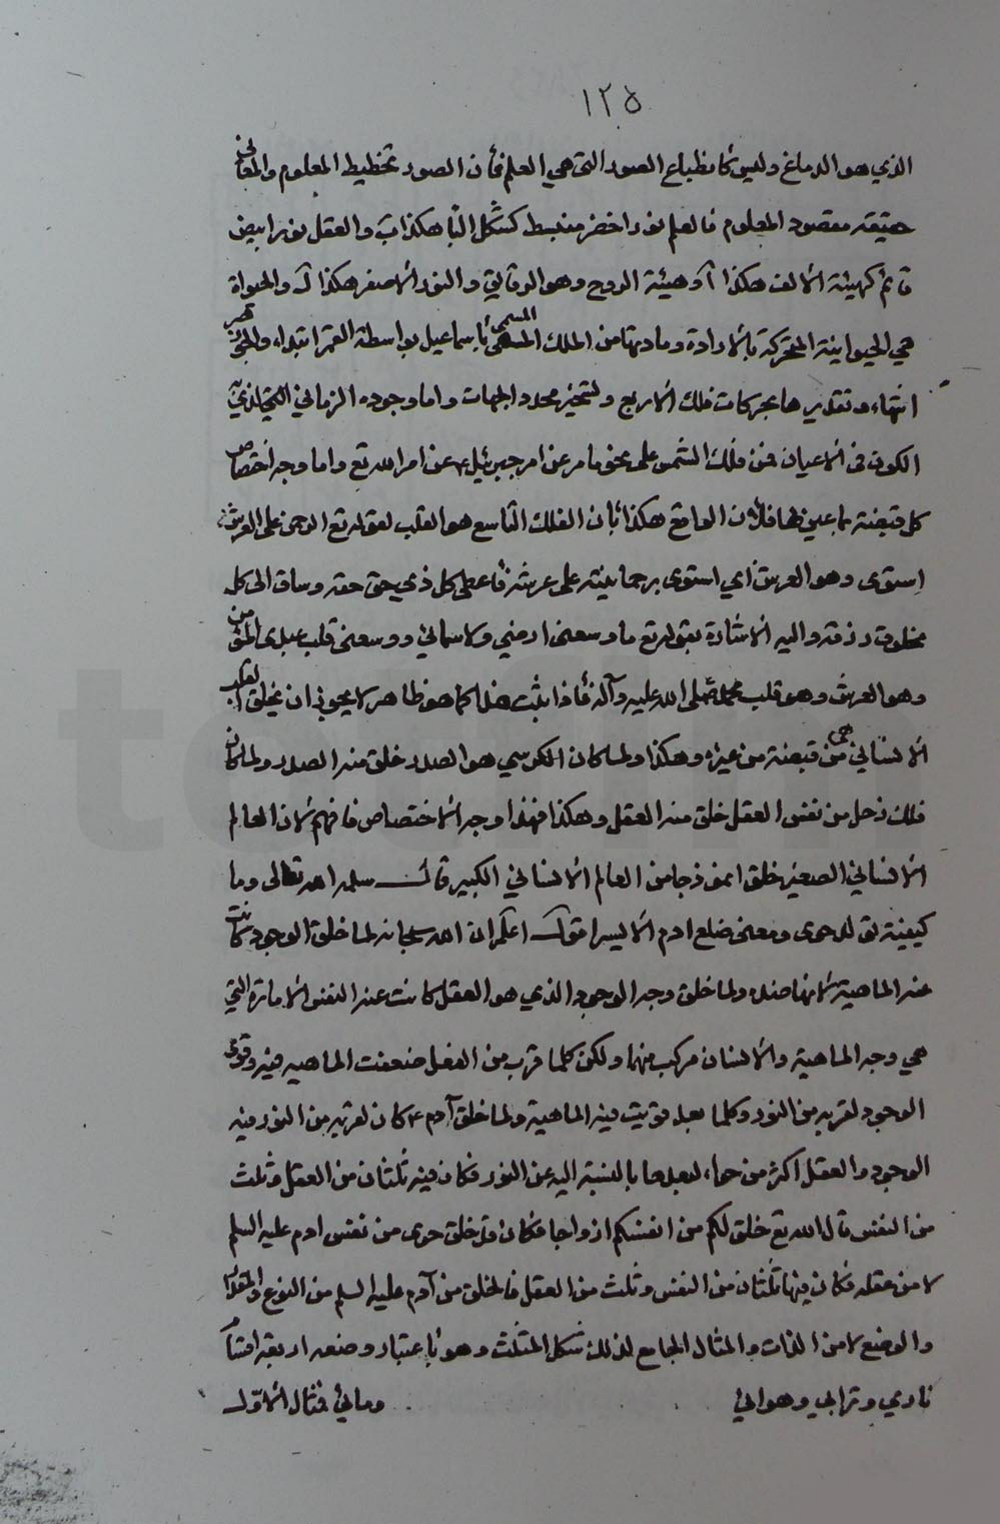 ١٢٥
الذي هو الدماغ وليس كانطباع الصور التي هي العلم فأن الصور تخطيط المعلوم والمعاني
حقيقة مقصود المعلوم فالعلم نور اخضر منبسط كشكل البا هكذا ب والعقل نور ابيض
قائم كهيئة الالف هكذا ا وهيئة الروح وهو الرقايق والنور الاصفر هكذا والحيواة
هي الحيوانية المتحركة بالارادة ومادتها من الملك المسمى باسماعيل بواسطة القمر ابتداء والجوزهر
انتهاء وتقديرها بحركات فلك الاربع ولتحيز محدد الجهات واما وجوده الزماني
الكون في الاعيان فمن فلك الشمس على نحو ما مر عن امر جبرئيل ع عن امر الله تع واما وجه اختصاص
كل قبضة بما عين لها فلأن الواقع هكذا بأن الفلك التاسع هو القلب لقوله تع الرحمن على العرش
استوى وهو العرش اي استوى برحمانيته على عرشه فاعطى كل ذي حق حقه وساق الى كل
مخلوق رزقه واليه الاشارة بقوله تع ما وسعني ارضي ولا سمائي ووسعني قلب عبدي المؤمن
وهو العرش وهو قلب محمد صلى الله عليه وآله فاذا ثبت هذا كما هو ظاهر لا يجوز ان يخلق القلب
الانساني من قبضة من غيره وهكذا ولما كان الكرسي هو الصدر خلق منه الصدر ولما كان
فلك زحل من نفس العقل خلق منه العقل وهكذا فهذا وجه الاختصاص فافهم لان العالم
الانساني الصغير خلق انموذجا من العالم الانساني الكبير قال سلمه الله تعالى وما
كيفية حوى ومعنى ضلع ادم الايسر اقول اعلم ان الله سبحانه لما خلق الوجود كانت
عنه الماهية لانها ضده ولما خلق وجه الوجود الذي هو العقل كانت عنه النفس الامارة التي
هي وجه الماهية والانسان مركب منهما ولكن كلما قرب من العقل ضعفت الماهيه فيه وقوى
الوجود لقربه من النور وكلما بعد قويت فيه الماهية ولما خلق آدم ع كان لقربه من النور فيه
الوجود والعقل اكثر من حواء لبعدها بالنسبة اليه عن النور فكان فيه ثلثان من العقل وثلث
من النفس قال الله تع خلق لكم من انفسكم ازواجا فكان قد خلق حوى من نفس ادم عليه السلم
لا من عقله فكان فيها ثلثان من النفس وثلث من العقل فالخلق من آدم عليه السلم من النوع والمقدار
والوضع لا من الذات والمثال الجامع لذلك شكل المثلث وهو باعتبار وضعه اربعة اقسام
ناري وترابي وهوائي ومائي فمثال الاول